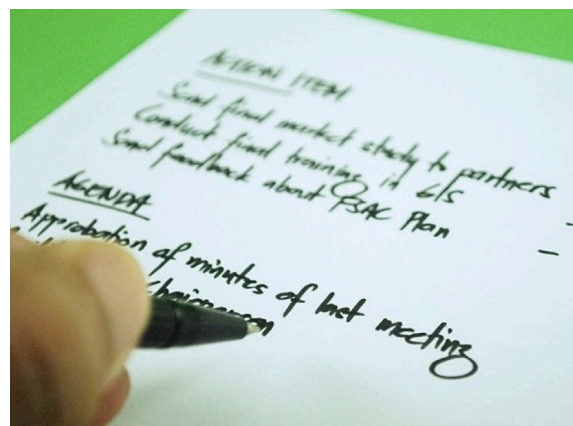 ACTION ITEM
Send final market study to partners
Conduct final training in 6/5
Send feedback about Plan
AGENDA
Approbation of minutes of last meeting
Chairperson